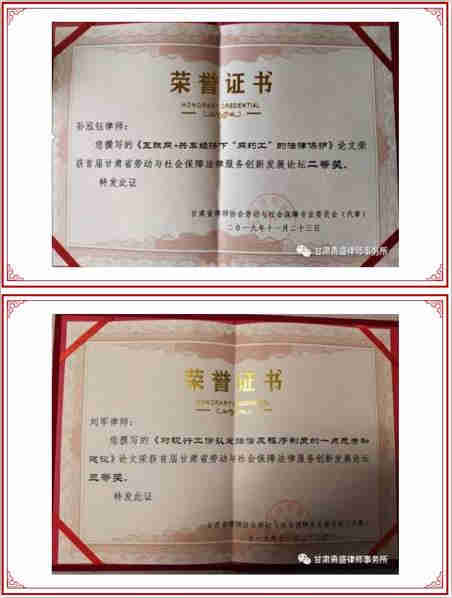 荣誉证书
HONORARY CREDENTIAL
孙泓钰律师：
您撰写的《互联网+共享经济下“网约工”的法律保护》论文荣
获首届甘肃省劳动与社会保障法律服务创新发展论坛二等奖。
特发此证
甘肃省律师协会劳动与社会保障专业委员会（代章）
二〇一九年十一月二十三日
甘肃勇盛律师事务所
荣誉证书
HONORARY CREDENTIAL
刘军律师：
您撰写的《对现行工伤认定法律及程序制度的一点思考和
建议》论文荣获首届甘肃省劳动与社会保障法律服务创新发展论坛
三等奖。
特发此证
甘肃勇盛律师事务所